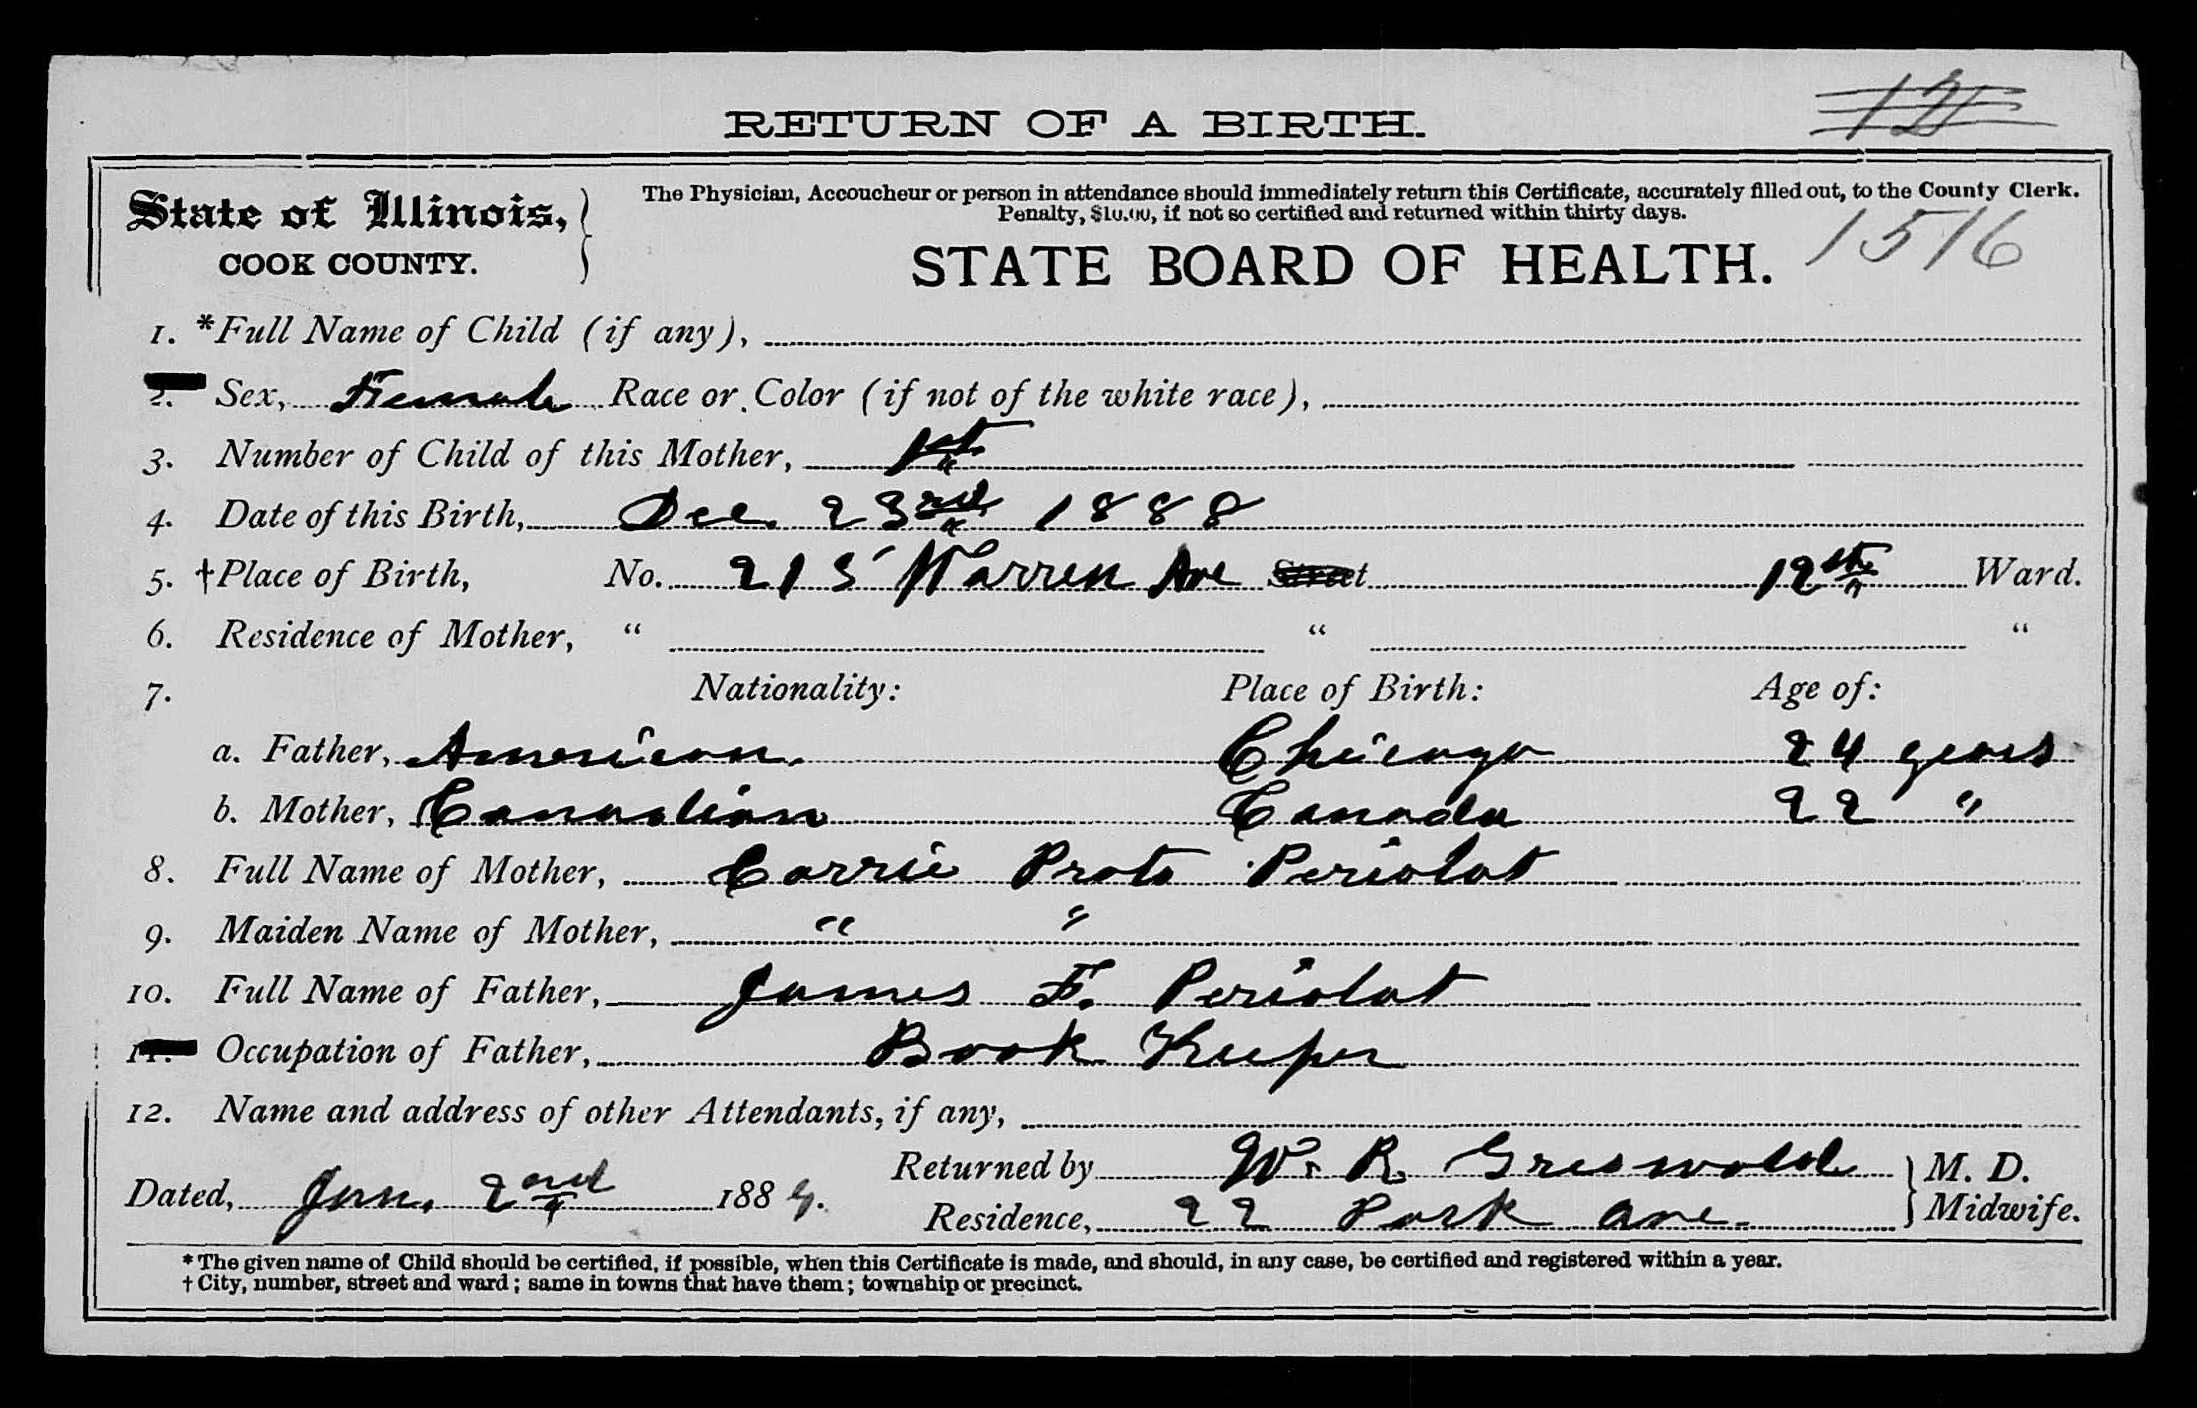 RETURN OF A BIRTH.
State of Illinois,
COOK COUNTY.
The Physician, Accoucheur or person in attendance should immediately return this Certificate, accurately filled out, to the County Clerk.
Penalty, $10.00, if not so certified and returned within thirty days.
STATE BOARD OF HEALTH. 1516
1. *Full Name of Child (if any),
2. Sex, Female Race or Color (if not of the white race),
3. Number of Child of this Mother, 1st
4. Date of this Birth, Dec. 23rd 1888
5. †Place of Birth, No. 215 Warren Ave Street 12th Ward.
6. Residence of Mother, " " "
7. Nationality: Place of Birth: Age of:
a. Father, American. Chicago 24 years
b. Mother, Canadian Canada 22 "
8. Full Name of Mother, Carrie Proto Periolat
9. Maiden Name of Mother, " "
10. Full Name of Father, James F. Periolat
11. Occupation of Father, Book Keeper
12. Name and address of other Attendants, if any,
Dated, Jan. 2nd 1889. Returned by W. R. Griswold M. D.
Residence, 22 Park Ave. Midwife.
* The given name of Child should be certified, if possible, when this Certificate is made, and should, in any case, be certified and registered within a year.
† City, number, street and ward; same in towns that have them; township or precinct.